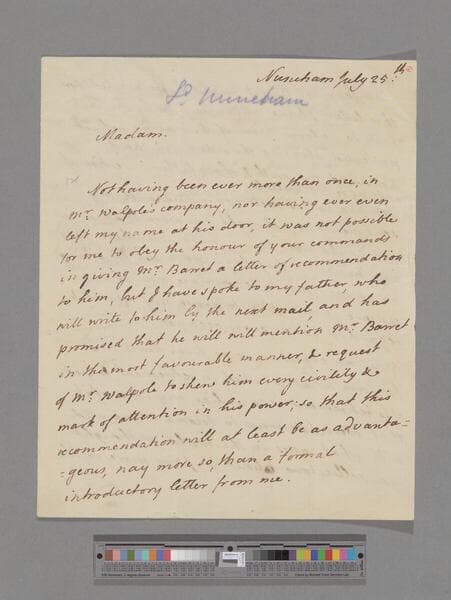 Nuneham July 25.th
Ld Nuneham
Madam.
Not having been ever more than once, in
Mr. Walpole's company, nor having ever even
left my name at his door, it was not possible
for me to obey the honour of your commands
in giving Mr. Barret a letter of recommendation
to him, but I have spoke to my father, who
will write to him by the next mail, and has
promised that he will will mention Mr. Barret
in the most favourable manner, & request
of Mr. Walpole to shew him every civility &
mark of attention in his power; so that this
recommendation will at least be as advanta=
=geous, nay more so, than a formal
introductory letter from me.